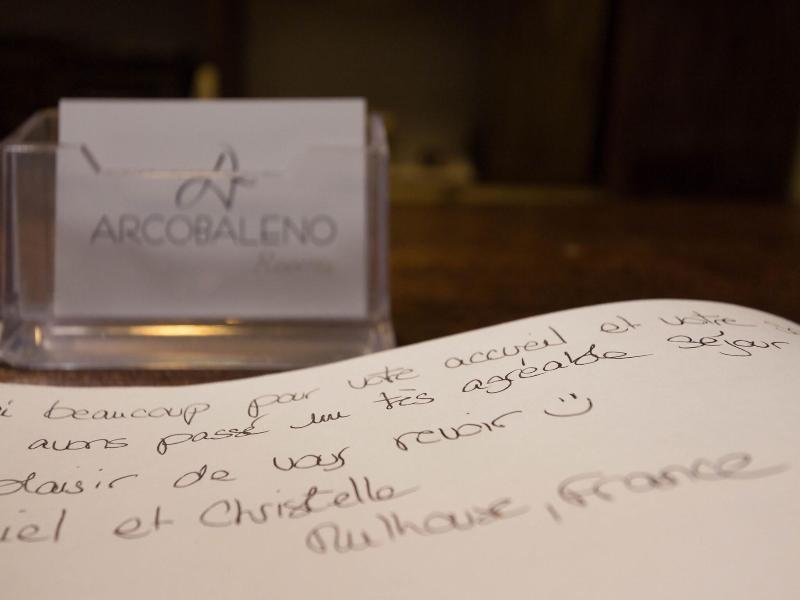 ARCOBALENO
Rooms
i beaucoup pour votre accueil et votre
avons passé un très agréable séjour
plaisir de vous revoir :)
iel et Christelle
Mulhouse, France